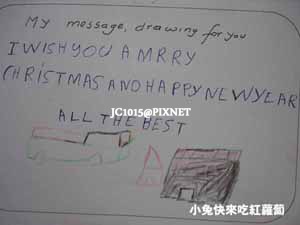 My message, drawing for you
I WISH YOU A MRRY
CHRISTMAS AND HAPPY NEW YLEAR
JC1015@PIXNET
ALL THE BEST
小兔快來吃紅蘿蔔